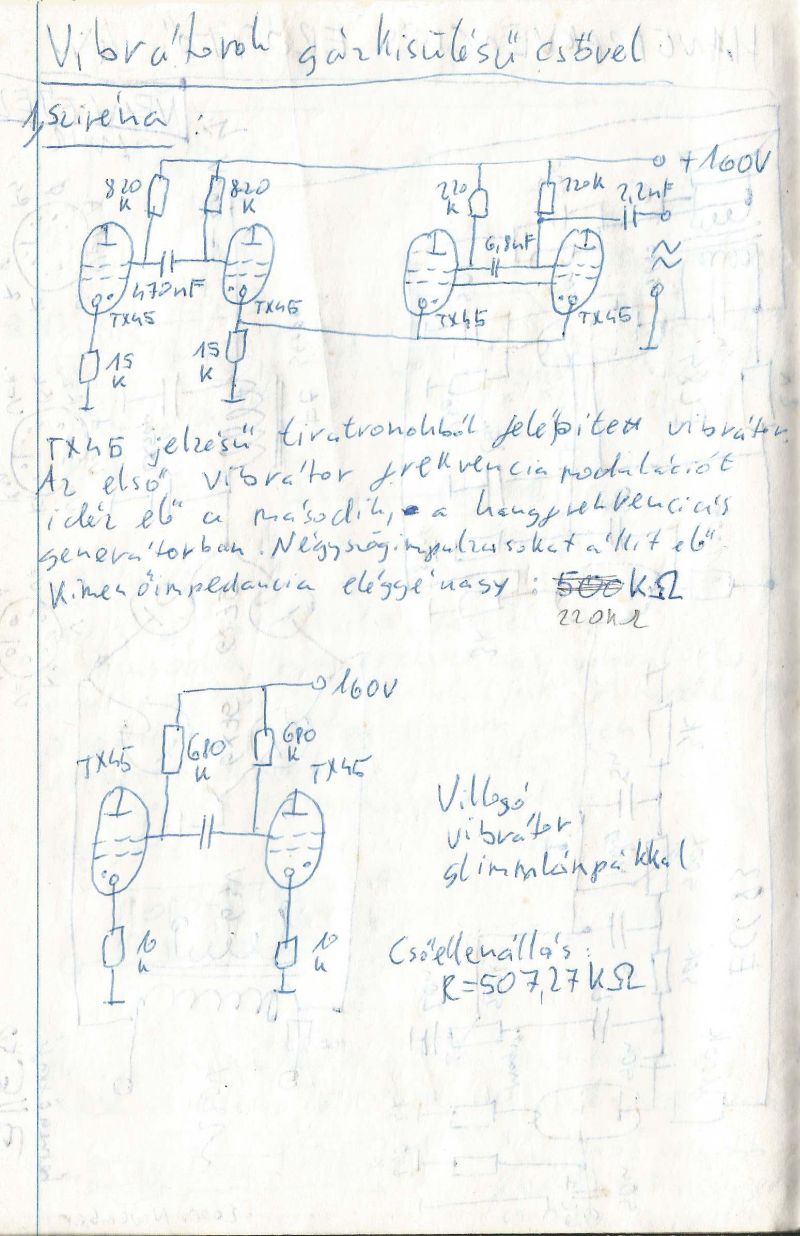 Vibrátorok gázkisülésű csővel
1, Sziréna :
+160V
820 K
820 K
220 K
220K
2,2nF
470nF
6,8nF
TX45
TX45
TX45
TX45
15 K
15 K
TX45 jelzésű tiratronokból felépített vibrátor.
Az első vibrátor frekvencia modulációt
idéz elő a második, a hangfrekvenciás
generátorban. Négyszögimpulzusokat állít elő.
Kimenőimpedancia eléggé nagy : 500 KΩ
220KΩ
160V
TX45
680 K
680 K
TX45
Villogó
vibrátor
glimmlámpákkal
10 K
10 K
Csőellenállás :
R=507,27 KΩ